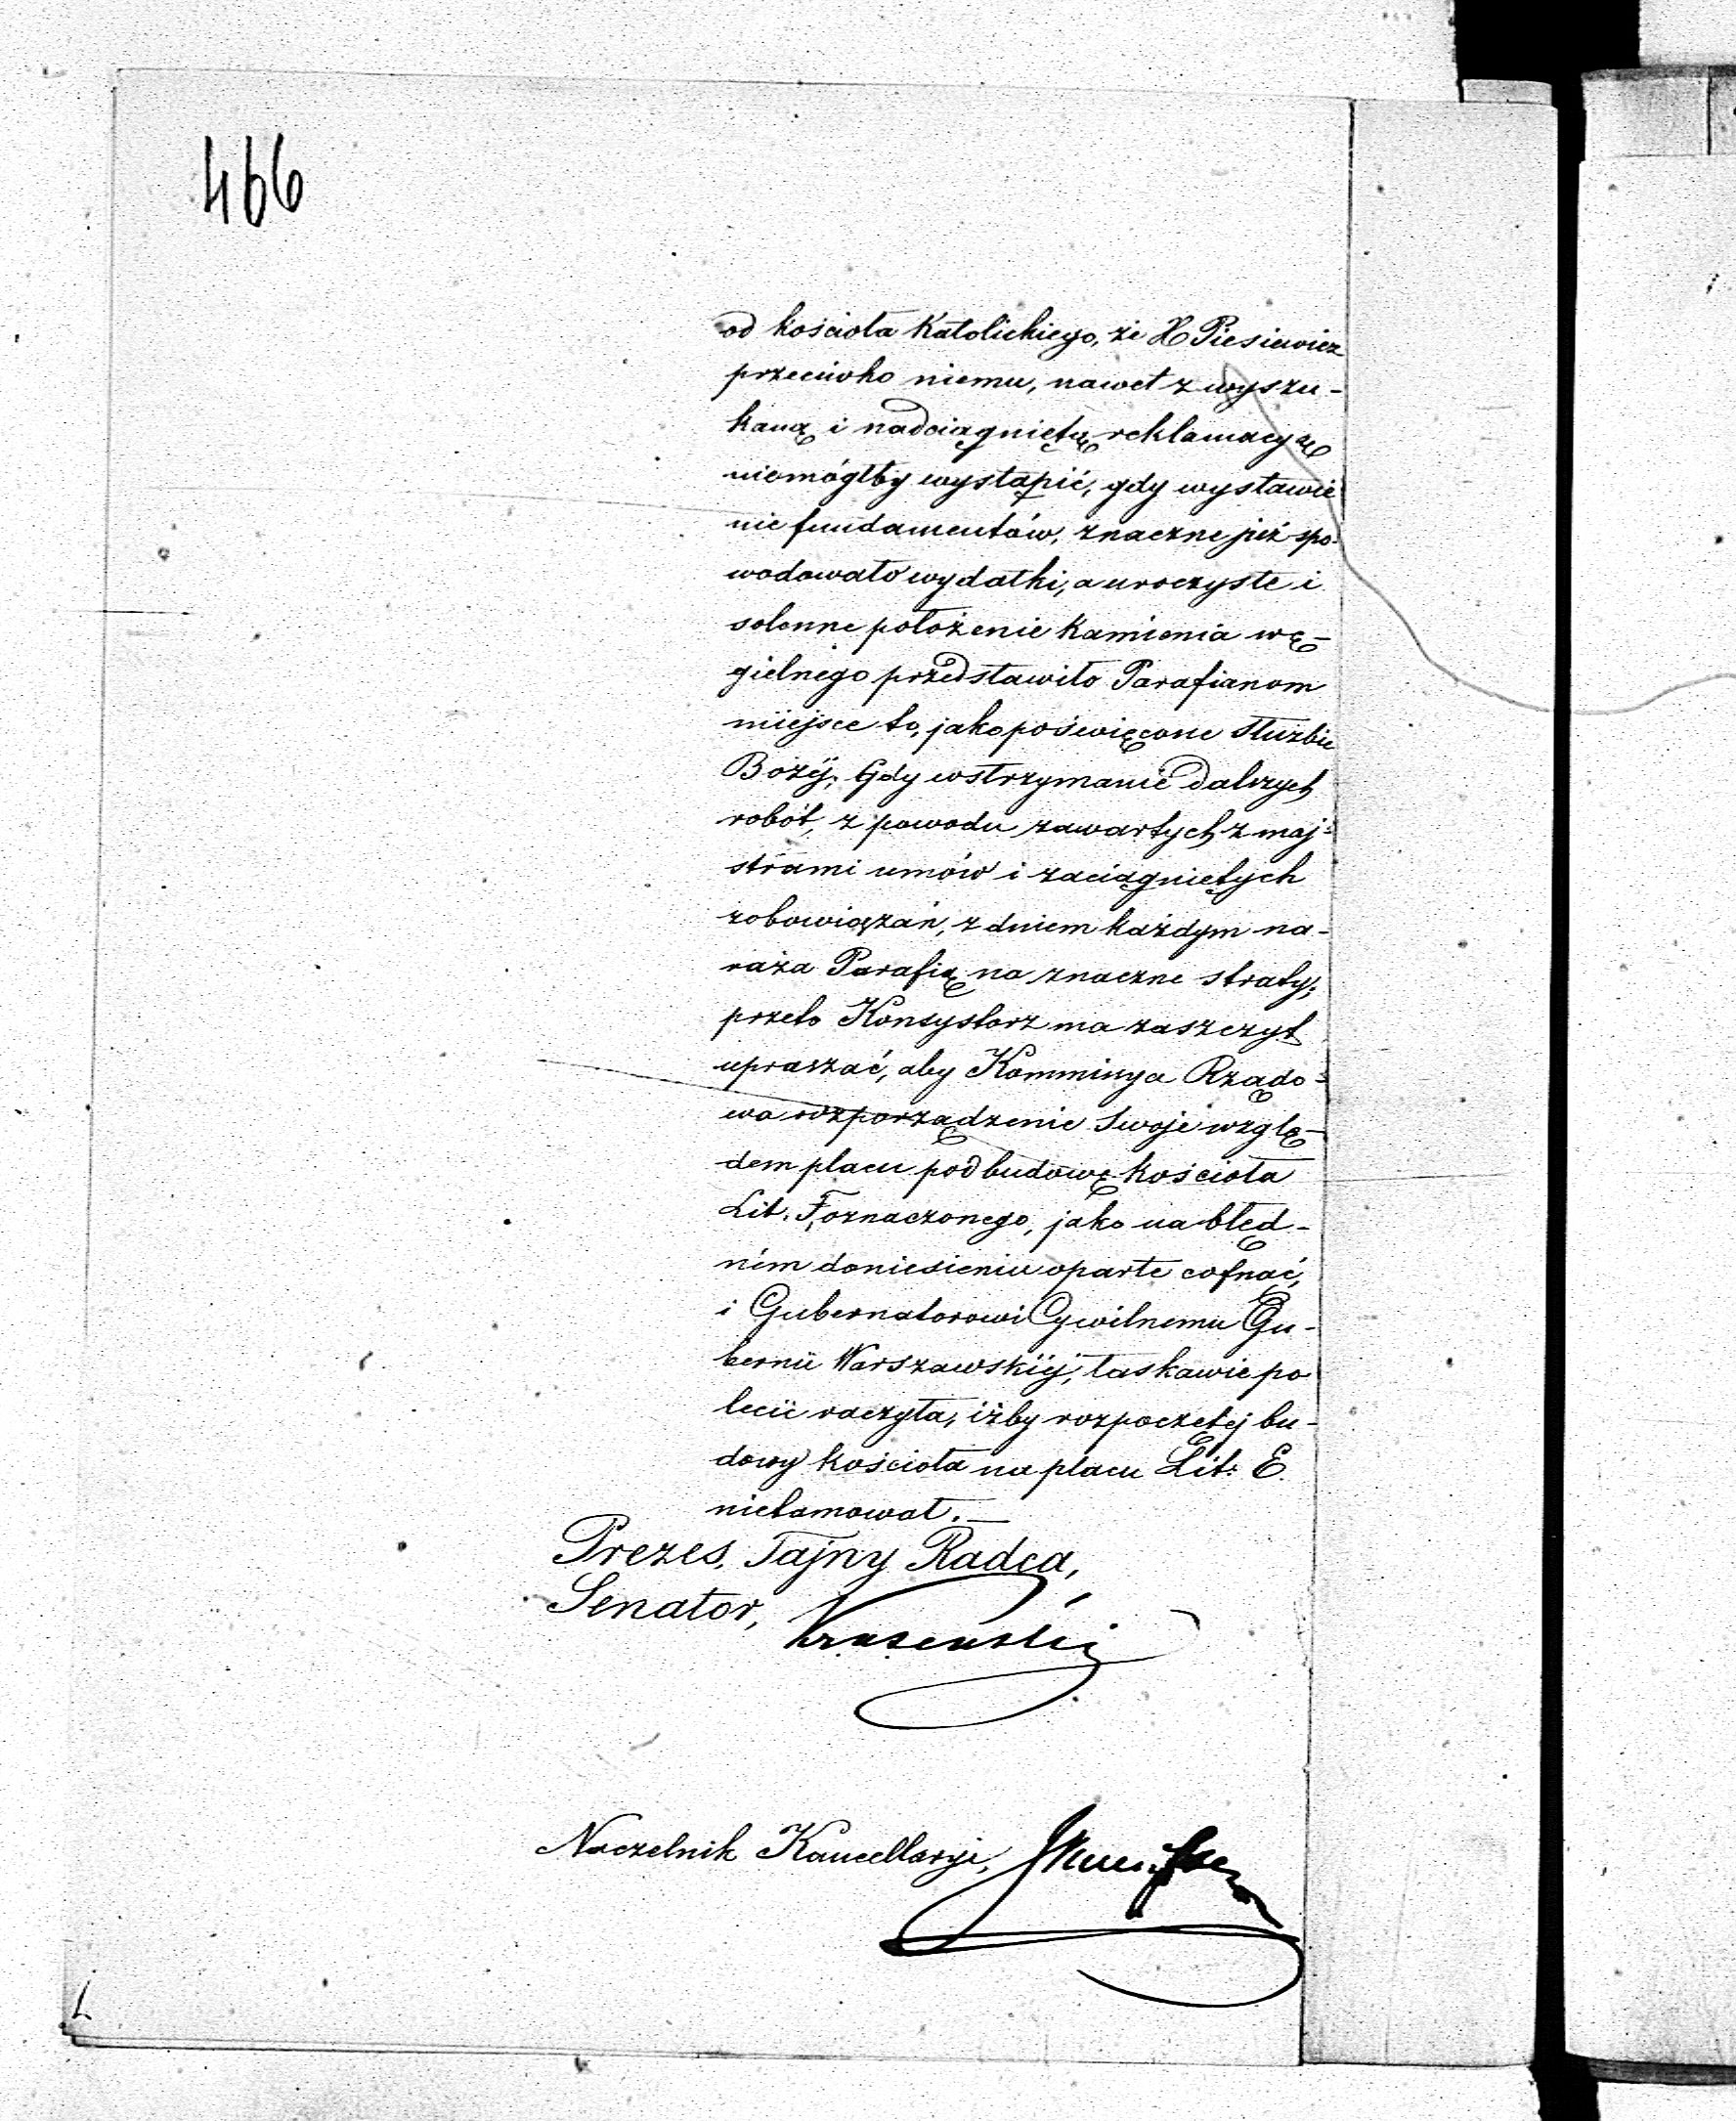 466
od kościoła Katolickiego, że X Piesiewicz
przeciwko niemu, nawet z wyszu-
kaną i nadciągniętą reklamacyą
niemógłby wystąpić, gdy wystawie
nie fundamentów, znaczne już spo-
wodowało wydatki, a uroczyste i
solenne położenie Kamienia wę-
gielnego przedstawiło Parafianom
miejsce to, jako poświęcone służbie
Bożéj; Gdy wstrzymanie dalszych
robót, z powodu zawartych z maj-
strami umów i zaciągniętych
zobowiązań, z dniem każdym na-
raża Parafię na znaczne straty;
przeto Konsystorz ma zaszczyt
upraszać, aby Kommissya Rządo-
wa rozporządzenie Swoje wzglę-
dem placu pod budowę kościoła
Lit. F, oznaczonego, jako na błęd-
ném doniesieniu oparte cofnąć,
i Gubernatorowi Cywilnemu Gu-
bernii Warszawskiéj, łaskawie po
lecić raczyła, iżby rozpoczętej bu-
dowy kościoła na placu Lit: E.
nietamował.—
Prezes, Tajny Radca,
Senator,
Naczelnik Kancellaryi,